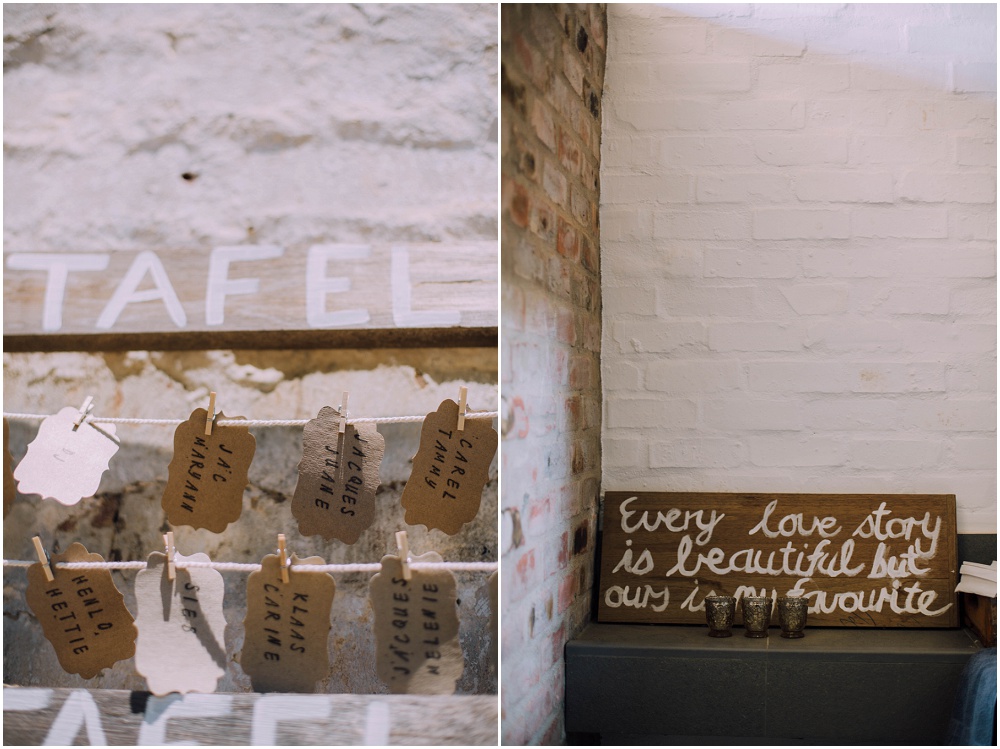 TAFEL
JA'C
MARYANN
JACQUES
JUANE
CAREL
TAMMY
HENLO,
HETTIE
SIES
KLAAS
CARINE
JACQUES
HELENIE
TAFEL
Every love story
is beautiful but
ours is my favourite